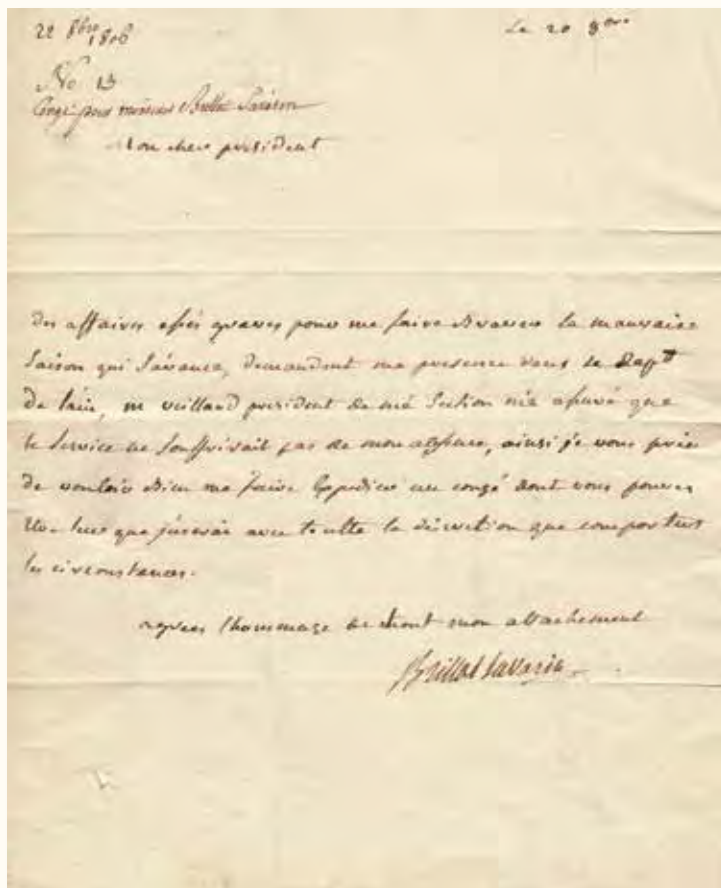 22 8bre 1806
Le 20 8bre
No 13
Congé pour monsieur Brillat Savarin
Mon cher président
des affaires assés graves pour me faire braver la mauvaise
saison qui s'avance, demandent ma presence vers le Dept
de l'ain, m vieillard president de ma section m'a assuré que
le service ne souffrirait pas de mon absence, ainsi je vous prie
de vouloir bien me faire expedier un congé dont vous pouvez
être sur que j'userai avec toutte la discretion que comportent
les circonstances.
agréez l'hommage de tout mon attachement
Brillat Savarin